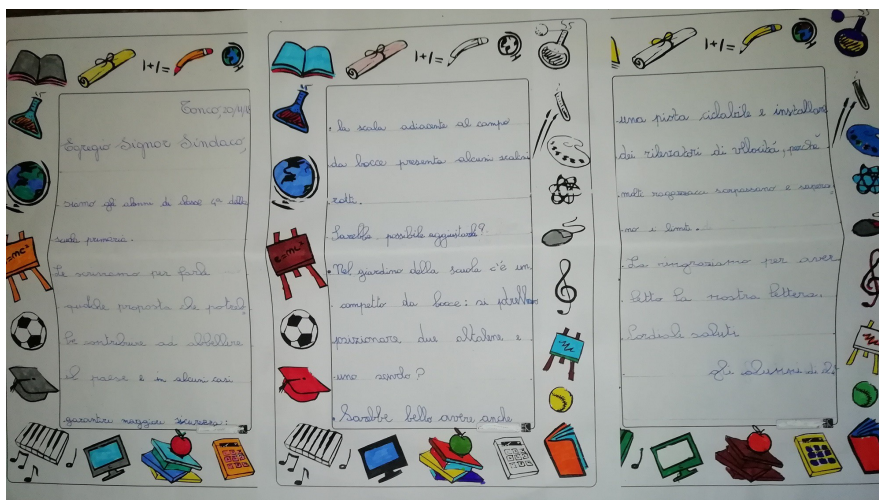 1+1=
Tonco, 20/4/
Egregio Signor Sindaco,
siamo gli alunni di classe 4ª della
scuola primaria.
Le scriviamo per farle
qualche proposta che potreb
be contribuire ad abbellire
il paese e in alcuni casi
garantire maggiore sicurezza:
E=mc²
1+1=
• la scala adiacente al campo
da bocce presenta alcuni scalini
rotti.
Sarebbe possibile aggiustarla?
• Nel giardino della scuola c'è un
campetto da bocce: si potrebbero
posizionare due altalene e
uno scivolo?
• Sarebbe bello avere anche
E=mc²
1+1=
una pista ciclabile e installare
dei rilevatori di velocità, perché
molti sorpassano e supera
no i limiti.
La ringraziamo per aver
letto la nostra lettera.
Cordiali saluti
gli alunni di